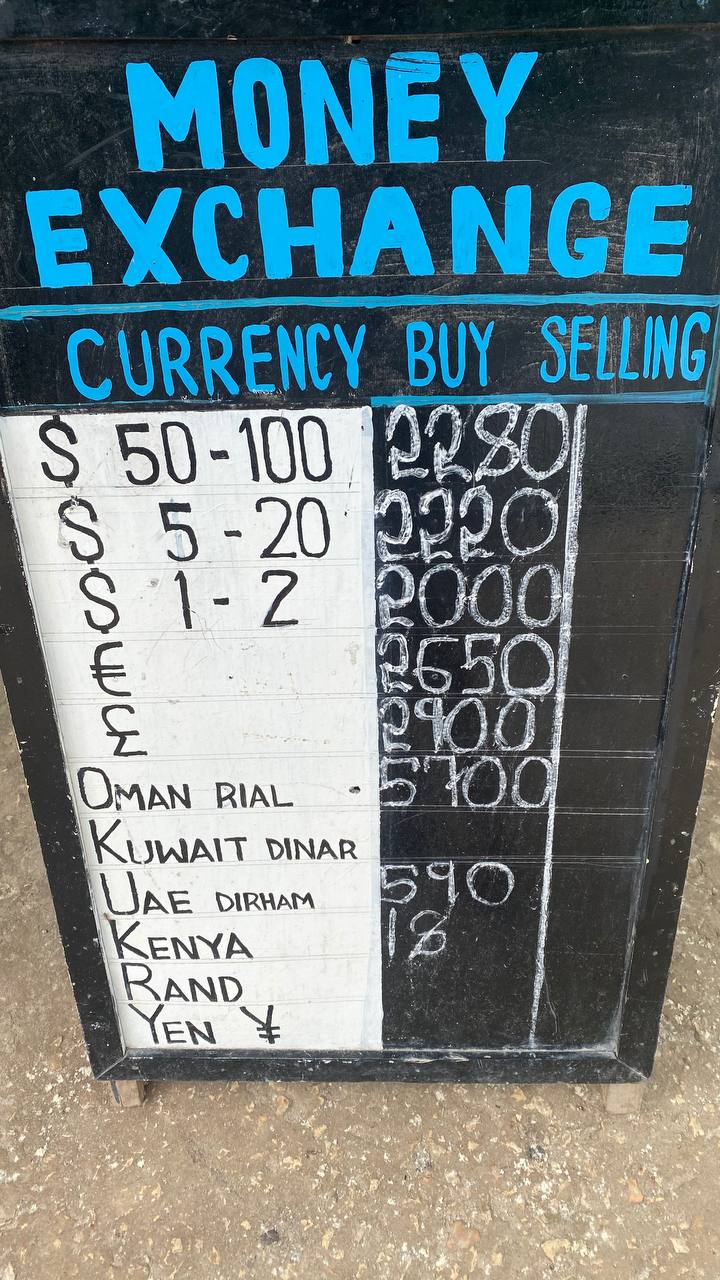 MONEY
EXCHANGE
CURRENCY BUY SELLING
$ 50-100 2280
$ 5-20 2220
$ 1-2 2000
€ 2650
£ 2900
OMAN RIAL 5700
KUWAIT DINAR
UAE DIRHAM 590
KENYA 18
RAND
YEN ¥